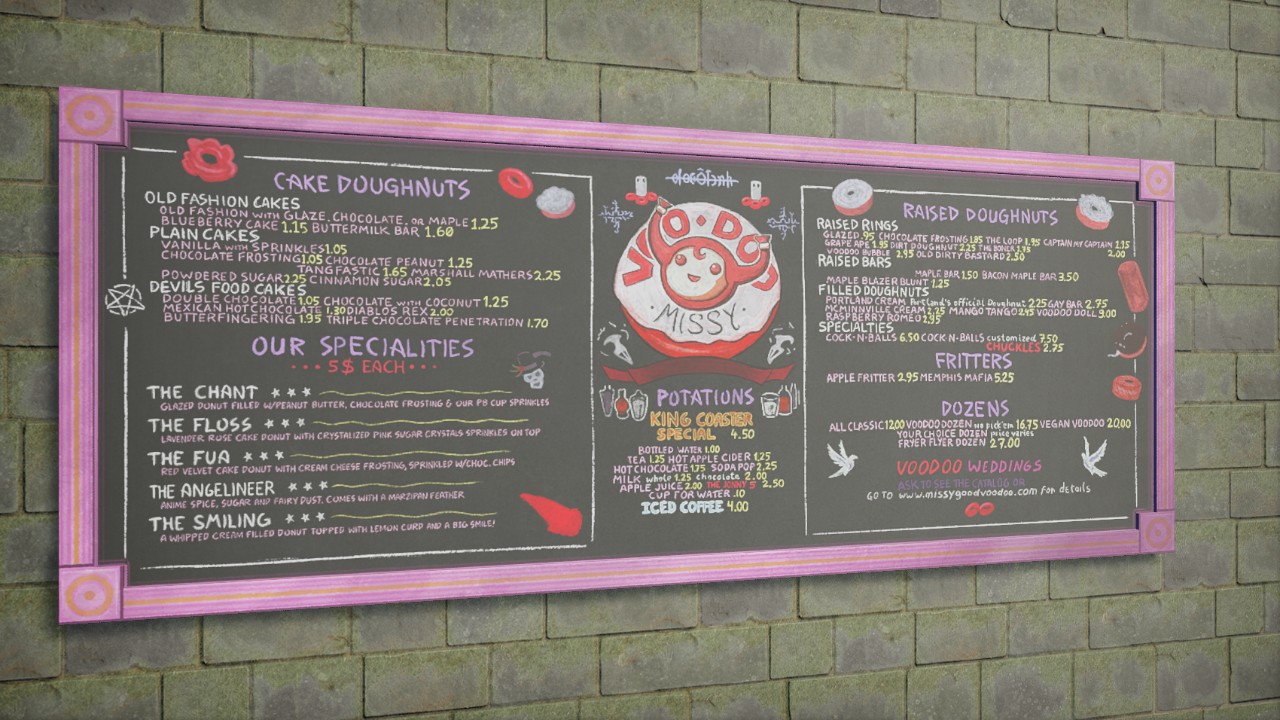 CAKE DOUGHNUTS
OLD FASHION CAKES
OLD FASHION WITH GLAZE, CHOCOLATE, OR MAPLE 1.25
BLUEBERRY CAKE 1.15 BUTTERMILK BAR 1.60
PLAIN CAKES
VANILLA WITH SPRINKLES 1.05
CHOCOLATE FROSTING 1.05 CHOCOLATE PEANUT 1.25
TANGFASTIC 1.65 MARSHALL MATHERS 2.25
POWDERED SUGAR 2.25 CINNAMON SUGAR 2.05
DEVILS FOOD CAKES
DOUBLE CHOCOLATE 1.05 CHOCOLATE WITH COCONUT 1.25
MEXICAN HOT CHOCOLATE 1.30 DIABLOS REX 2.00
BUTTERFINGERING 1.95 TRIPLE CHOCOLATE PENETRATION 1.70
OUR SPECIALITIES
5$ EACH
THE CHANT
GLAZED DONUT FILLED W/PEANUT BUTTER, CHOCOLATE FROSTING & OUR PB CUP SPRINKLES
THE FLOSS
LAVENDER ROSE CAKE DONUT WITH CRYSTALIZED PINK SUGAR CRYSTALS SPRINKLES ON TOP
THE FUA
RED VELVET CAKE DONUT WITH CREAM CHEESE FROSTING, SPRINKLED W/CHOC. CHIPS
THE ANGELINEER
ANIME SPICE, SUGAR AND FAIRY DUST. COMES WITH A MARZIPAN FEATHER
THE SMILING
A WHIPPED CREAM FILLED DONUT TOPPED WITH LEMON CURD AND A BIG SMILE!
VOO·DOO
·MISSY·
POTATIONS
KING COASTER
SPECIAL 4.50
BOTTLED WATER 1.00
TEA 1.25 HOT APPLE CIDER 1.25
HOT CHOCOLATE 1.75 SODA POP 2.25
MILK whole 1.25 chocolate 2.00
APPLE JUICE 2.00 THE JONNY 5 2.50
CUP FOR WATER .10
ICED COFFEE 4.00
RAISED DOUGHNUTS
RAISED RINGS
GLAZED .95 CHOCOLATE FROSTING 1.05 THE LOOP 1.95 CAPTAIN MY CAPTAIN 1.95
GRAPE APE 1.95 DIRT DOUGHNUT 2.25 THE HOMER 2.00
VOODOO BUBBLE 2.95 OLD DIRTY BASTARD 2.50
RAISED BARS
MAPLE BAR 1.50 BACON MAPLE BAR 3.50
MAPLE BLAZER BLUNT 1.25
FILLED DOUGHNUTS
PORTLAND CREAM Portland's official Doughnut 2.25 GAY BAR 2.75
MCMINNVILLE CREAM 2.25 MANGO TANGO 2.45 VOODOO DOLL 3.00
RASPBERRY ROMEO 2.35
SPECIALTIES
COCK-N-BALLS 6.50 COCK-N-BALLS customized 7.50
CHUCKLES 2.75
FRITTERS
APPLE FRITTER 2.95 MEMPHIS MAFIA 5.25
DOZENS
ALL CLASSIC 12.00 VOODOO DOZEN no pick'em 16.75 VEGAN VOODOO 20.00
YOUR CHOICE DOZEN price varies
FRYER FLYER DOZEN 27.00
VOODOO WEDDINGS
ASK TO SEE THE CATALOG OR
GO TO www.missygoodvoodoo.com for details